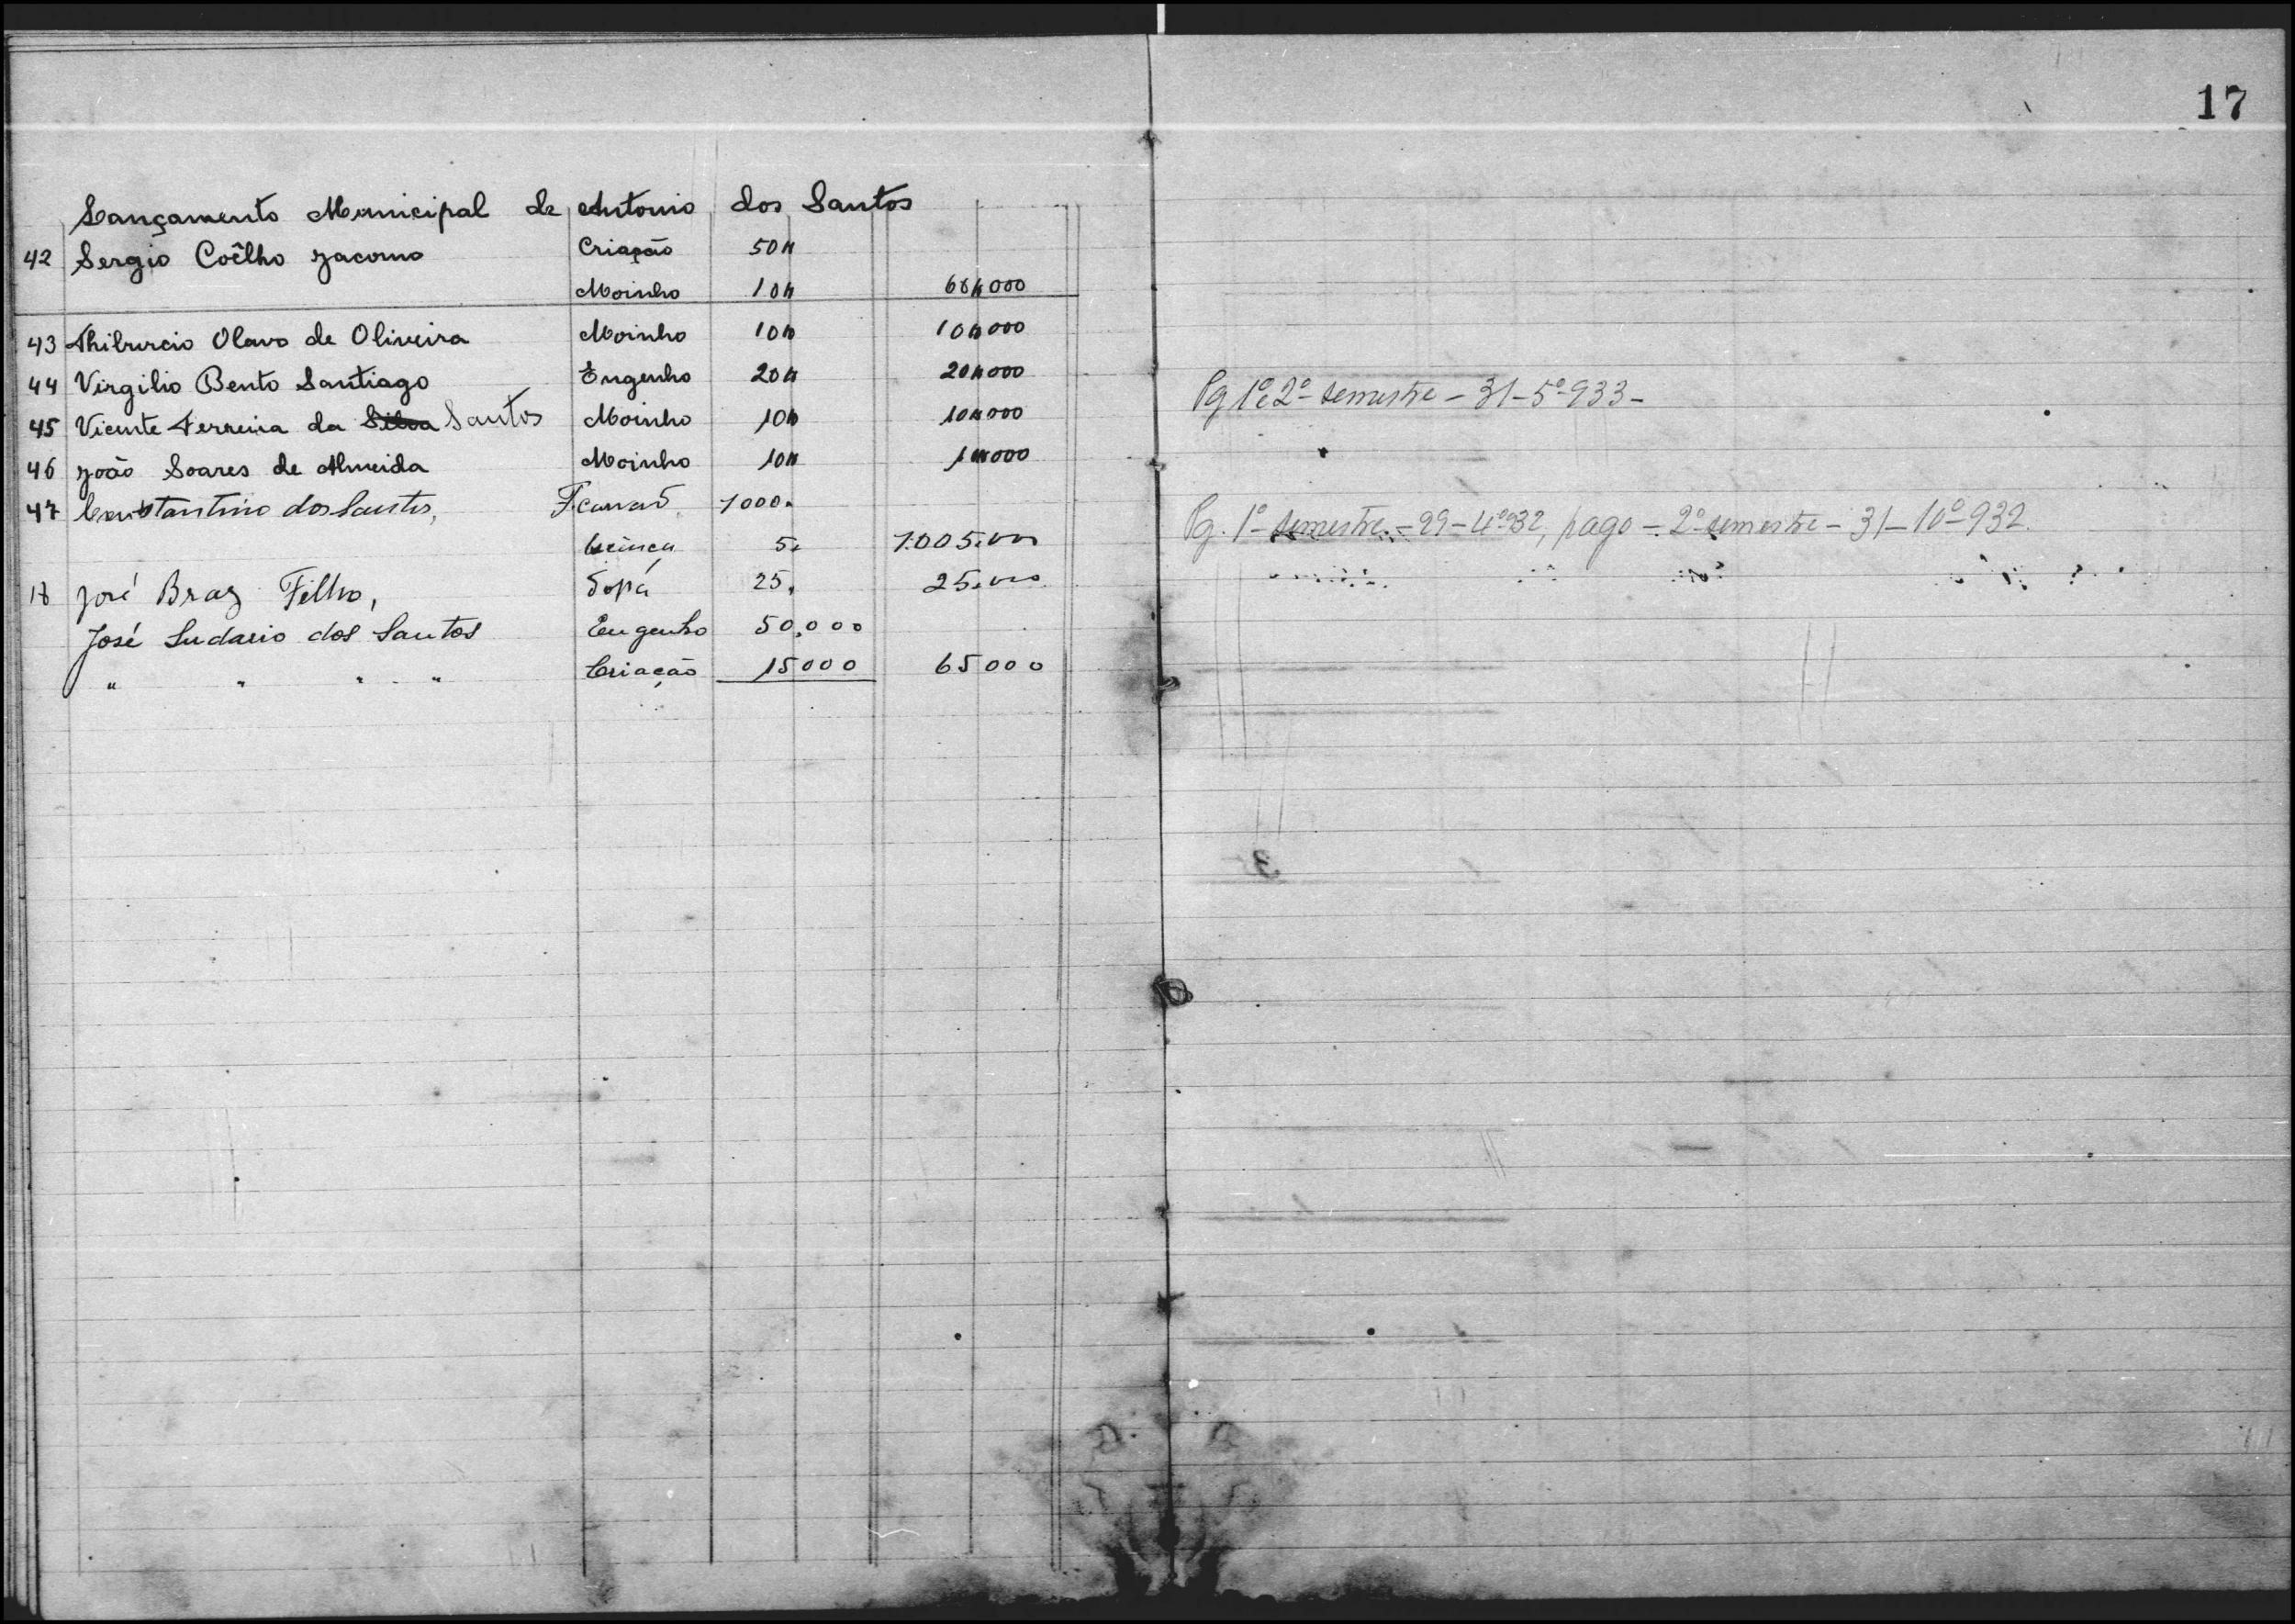 17
Lançamento Municipal de Antonio dos Santos
42 Sergio Coêlho Jacomo Criação 50$
Moinho 10$ 60$000
43 Thiburcio Olavo de Oliveira Moinho 10$ 10$000
44 Virgilio Bento Santiago Engenho 20$ 20$000
45 Vicente Ferreira da Silva Santos Moinho 10$ 10$000
46 João Soares de Almeida Moinho 10$ 10$000
47 Constantino dos Santos, 1000.
5. 1.005.000
18 José Braz Filho, 25. 25.000
José Sudario dos Santos Engenho 50.000
" " " " Criação 15000 65000
Pg 1º e 2º semestre - 31-5º-933-
Pg. 1º semestre - 29-4º-932, pago - 2º semestre - 31-10º-932.